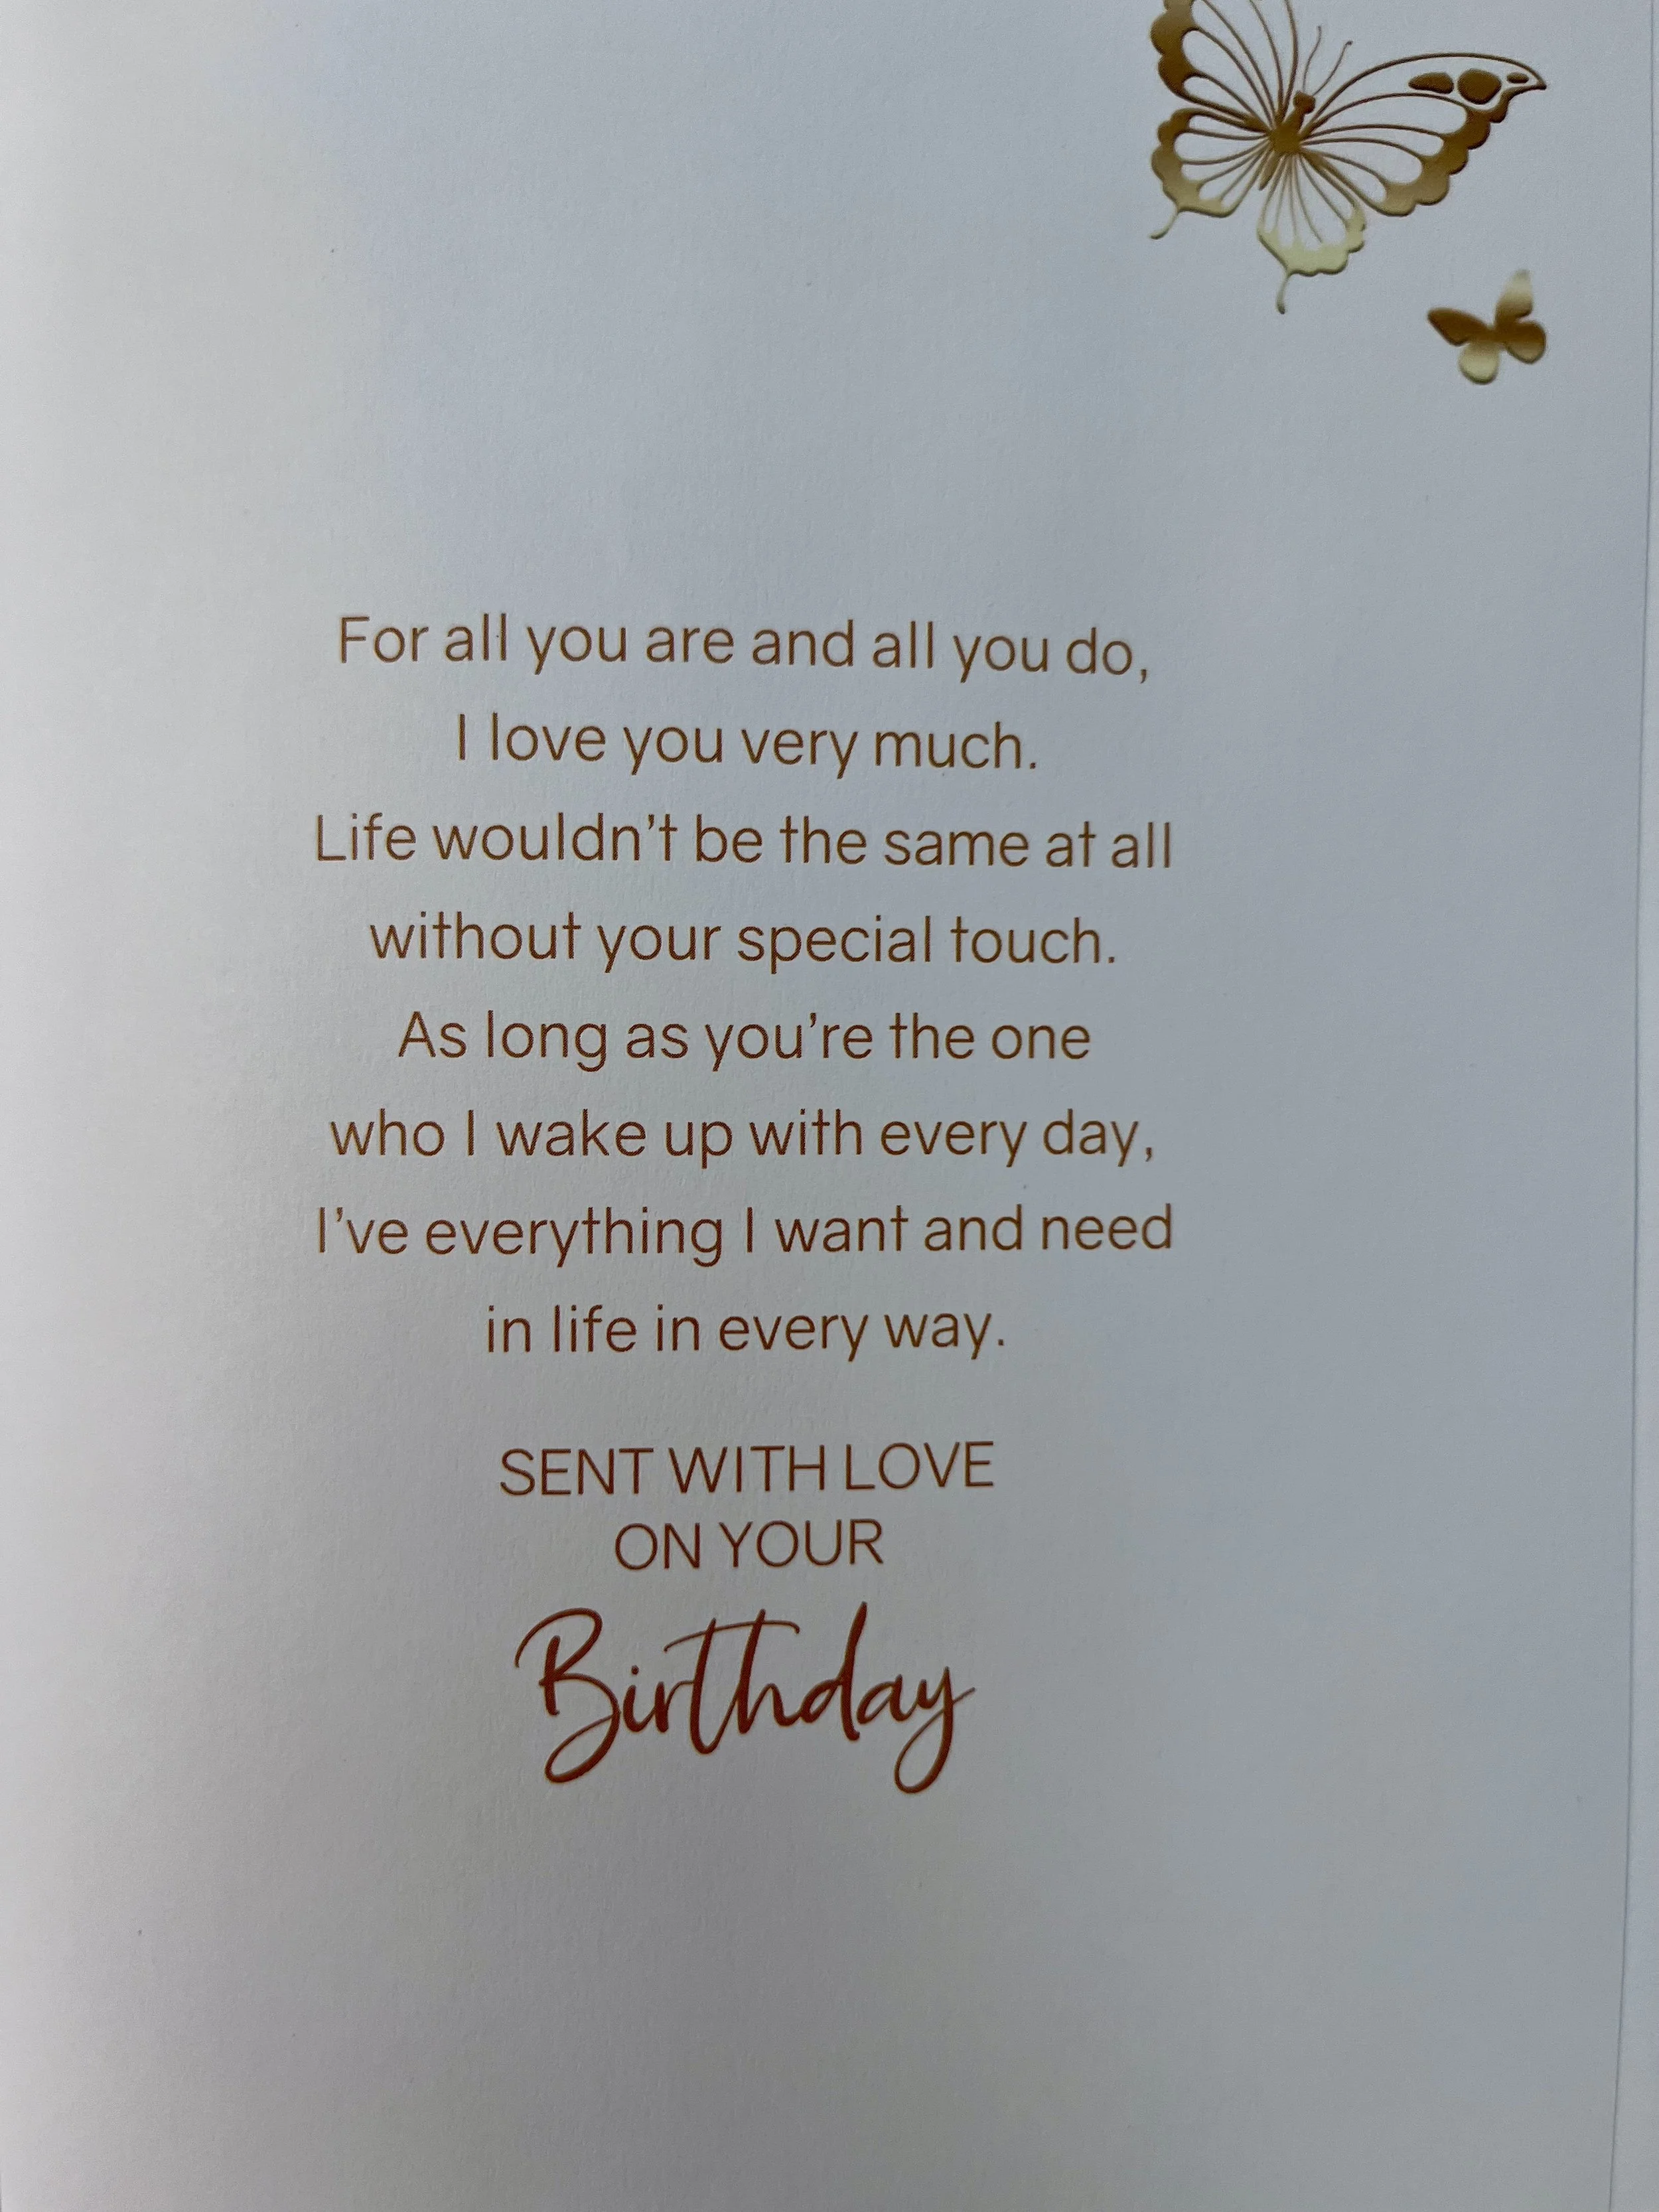 For all you are and all you do,
I love you very much.
Life wouldn't be the same at all
without your special touch.
As long as you're the one
who I wake up with every day,
I've everything I want and need
in life in every way.
SENT WITH LOVE
ON YOUR
Birthday